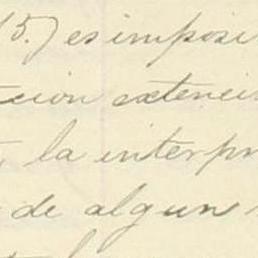 15.) es imposi
cion extencio
, la interpr
de algun